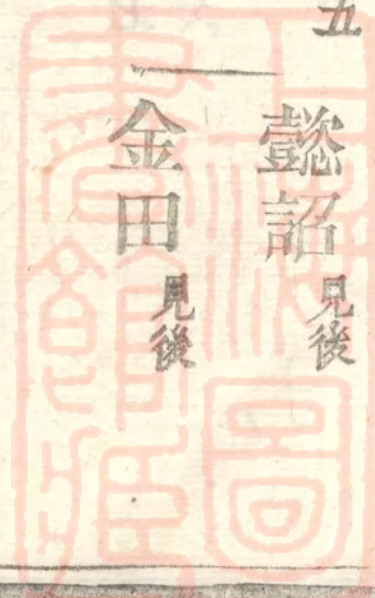 五
懿詔見後
金田見後